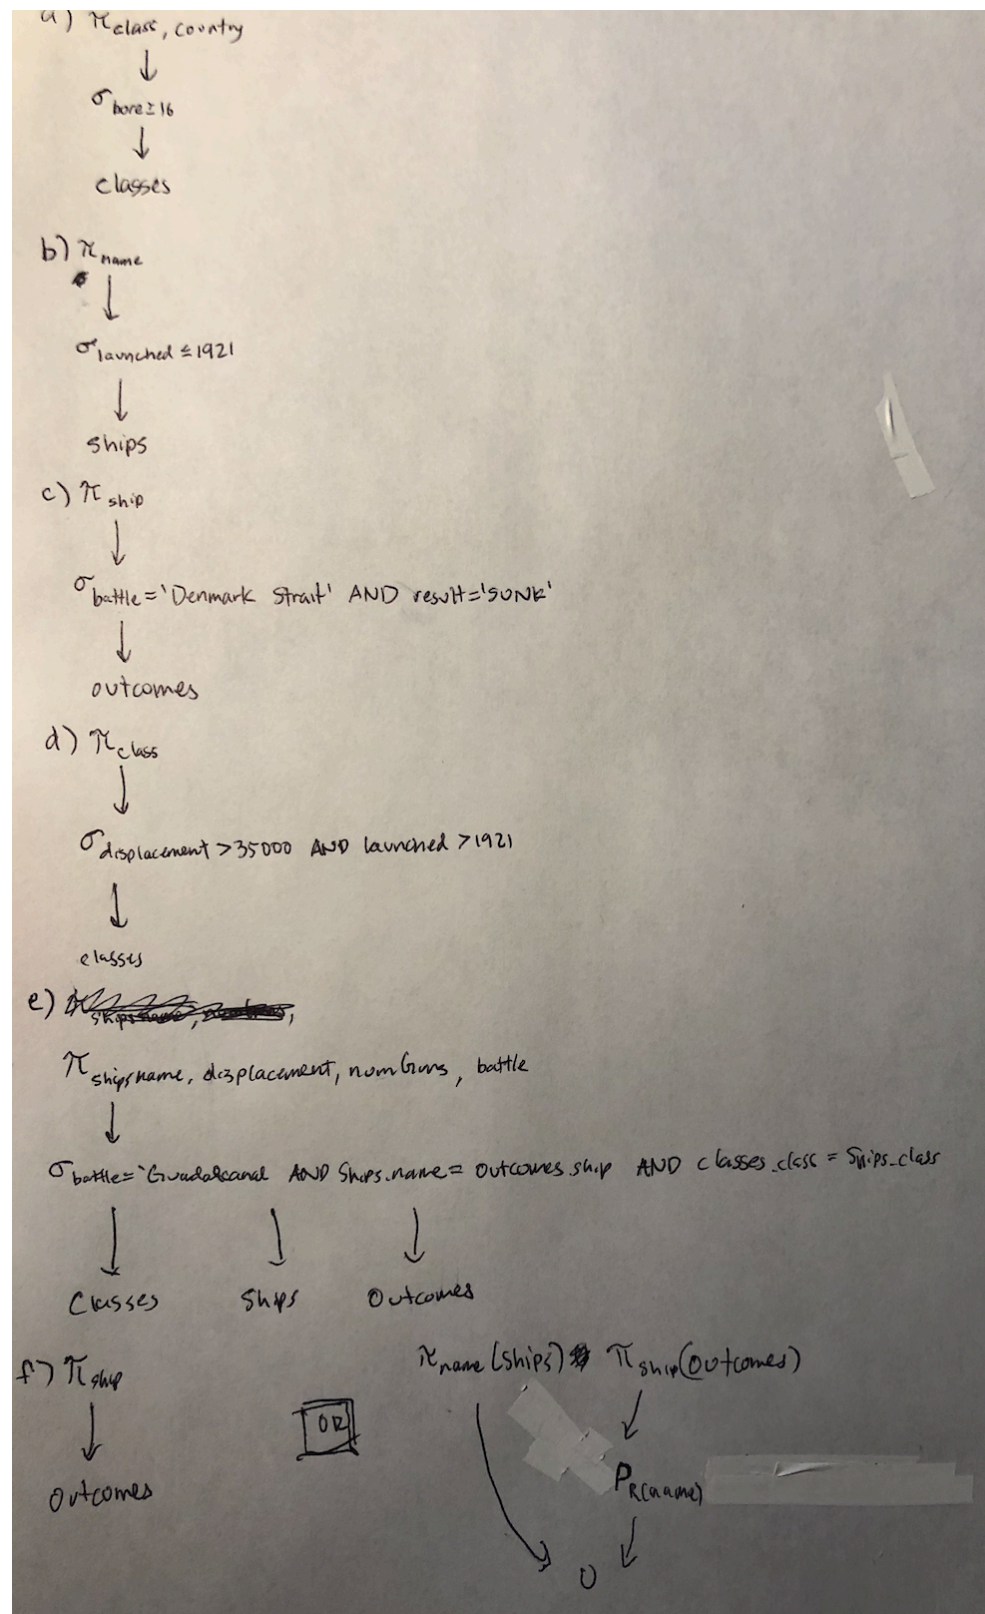 a) π class, country
↓
σ bore ≥ 16
↓
classes
b) π name
↓
σ launched ≤ 1921
↓
ships
c) π ship
↓
σ battle = 'Denmark Strait' AND result = 'SUNK'
↓
outcomes
d) π class
↓
σ displacement > 35000 AND launched > 1921
↓
classes
e)
π shipsname, displacement, numGuns, battle
↓
σ battle = 'Guadalcanal AND Ships.name = outcomes.ship AND classes.class = Ships.class
↓ ↓ ↓
Classes Ships Outcomes
f) π ship
↓
Outcomes
OR
π name (ships) π ship (Outcomes)
↓
ρ R(name)
↓ ↓
∪